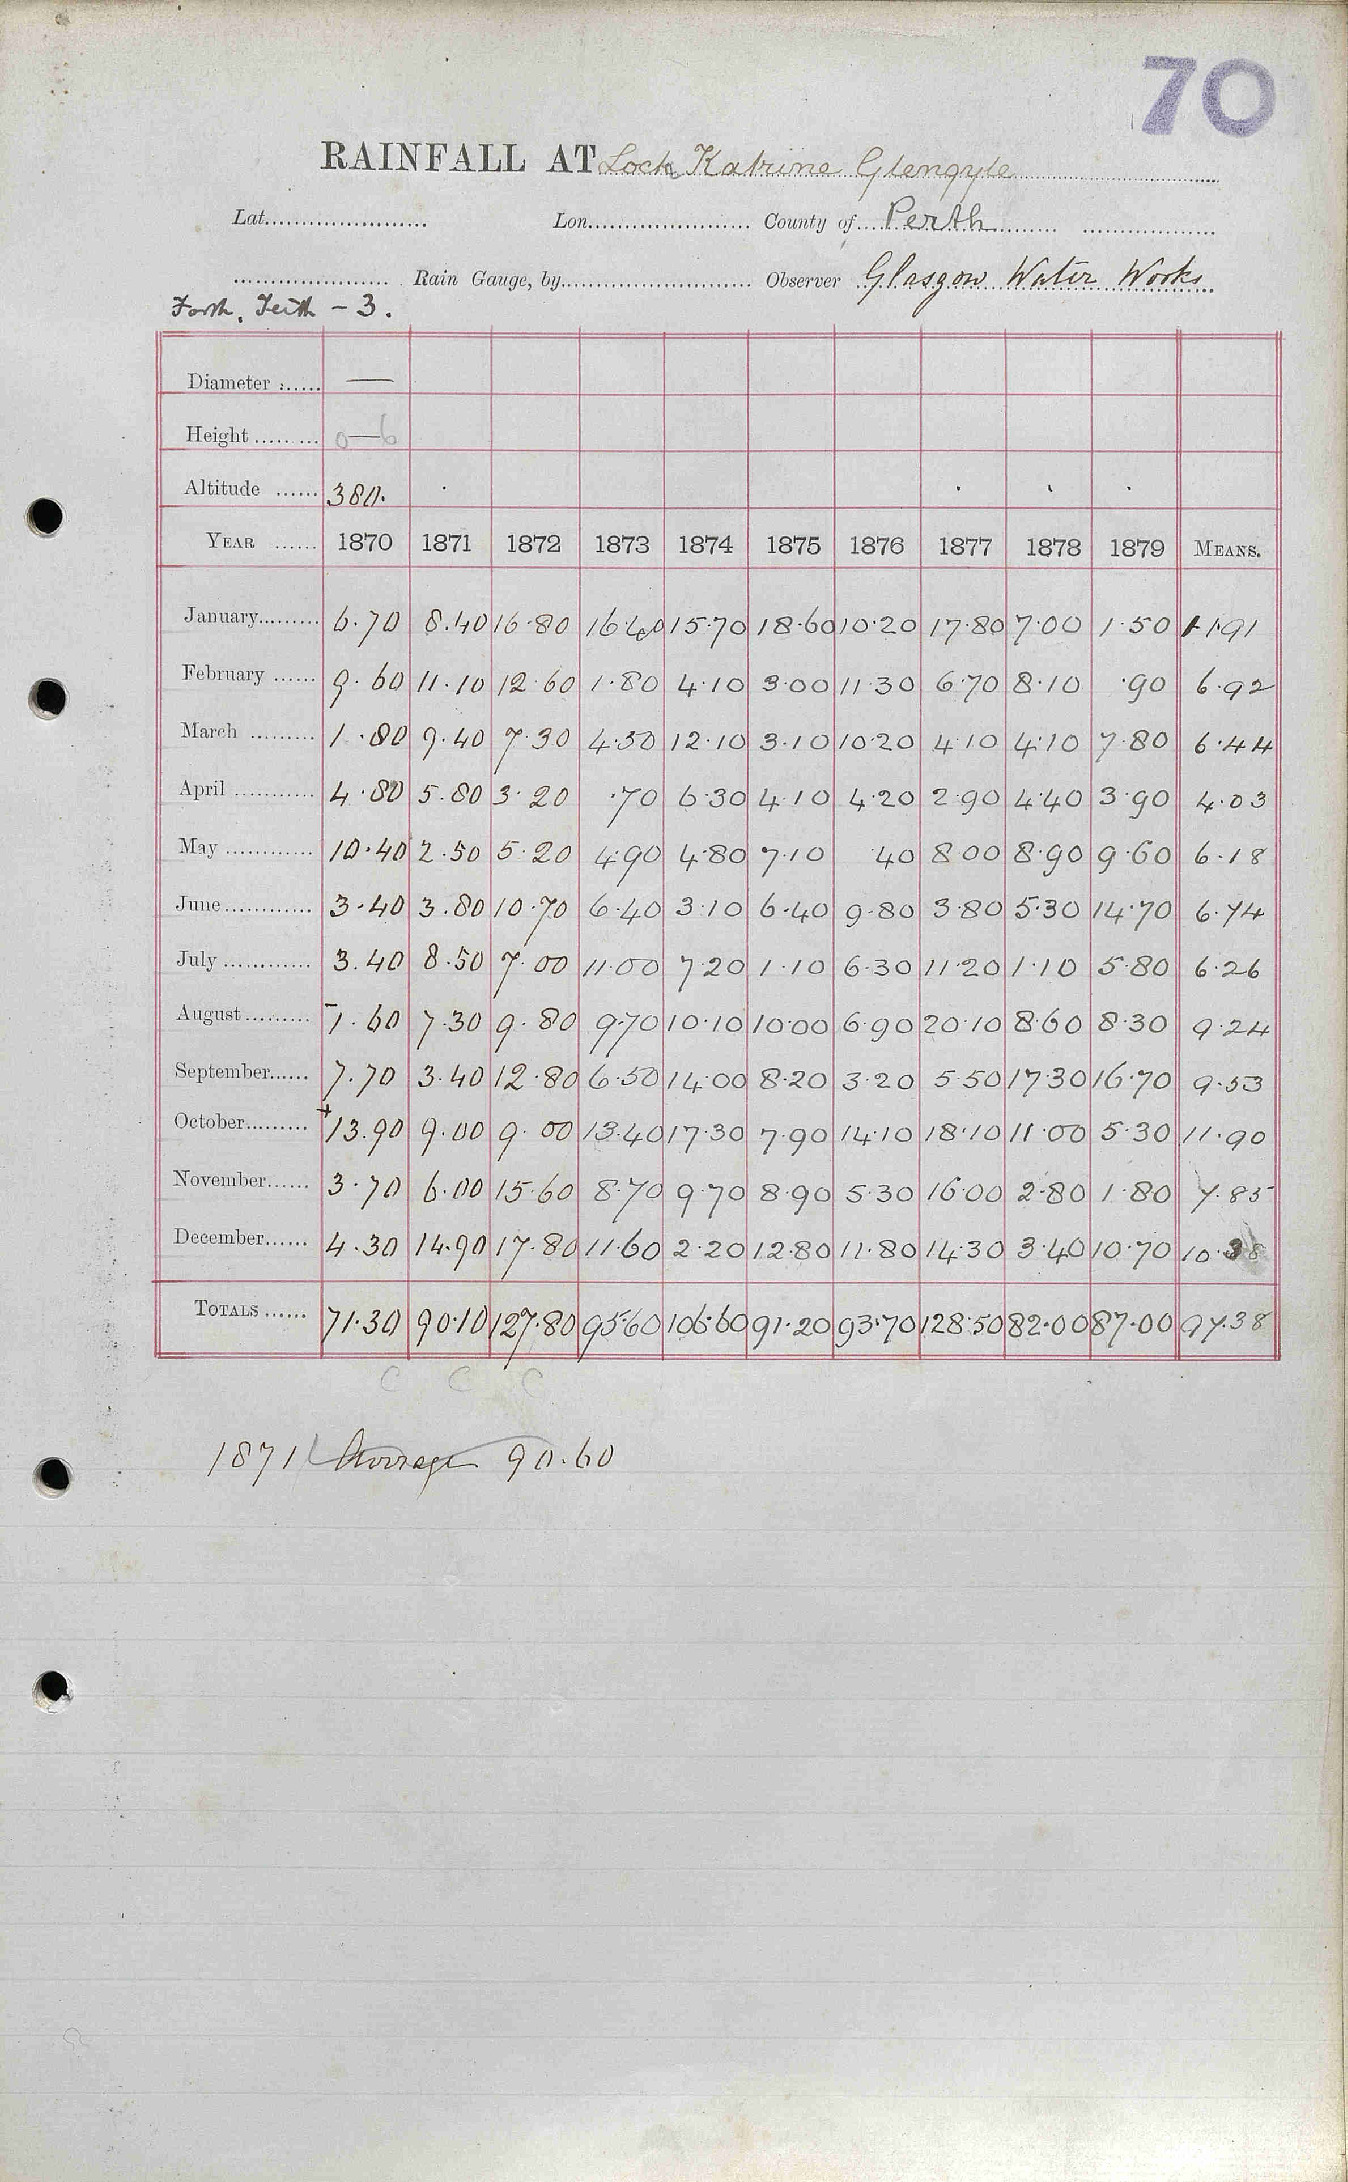 70
RAINFALL AT Loch Katrine Glengyle
Lat...................... Lon...................... County of....Perth.......... ..................
..................... Rain Gauge, by........................... Observer Glasgow Water Works
Forth, Teith - 3.
Diameter :...... —
Height ......... 0—6
Altitude ...... 380.
YEAR ...... 1870 1871 1872 1873 1874 1875 1876 1877 1878 1879 MEANS.
January......... 6.70 8.40 16.80 16.40 15.70 18.60 10.20 17.80 7.00 1.50 11.91
February ...... 9.60 11.10 12.60 1.80 4.10 3.00 11.30 6.70 8.10 .90 6.92
March ......... 1.80 9.40 7.30 4.50 12.10 3.10 10.20 4.10 4.10 7.80 6.44
April ............ 4.80 5.80 3.20 .70 6.30 4.10 4.20 2.90 4.40 3.90 4.03
May ............. 10.40 2.50 5.20 4.90 4.80 7.10 40 8.00 8.90 9.60 6.18
June............. 3.40 3.80 10.70 6.40 3.10 6.40 9.80 3.80 5.30 14.70 6.74
July ............. 3.40 8.50 7.00 11.00 7.20 1.10 6.30 11.20 1.10 5.80 6.26
August.......... 1.60 7.30 9.80 9.70 10.10 10.00 6.90 20.10 8.60 8.30 9.24
September...... 7.70 3.40 12.80 6.50 14.00 8.20 3.20 5.50 17.30 16.70 9.53
October......... 13.90 9.00 9.00 13.40 17.30 7.90 14.10 18.10 11.00 5.30 11.90
November...... 3.70 6.00 15.60 8.70 9.70 8.90 5.30 16.00 2.80 1.80 7.85
December...... 4.30 14.90 17.80 11.60 2.20 12.80 11.80 14.30 3.40 10.70 10.38
TOTALS ...... 71.30 90.10 127.80 95.60 106.60 91.20 93.70 128.50 82.00 87.00 97.38
C C C
1871 Average 90.60